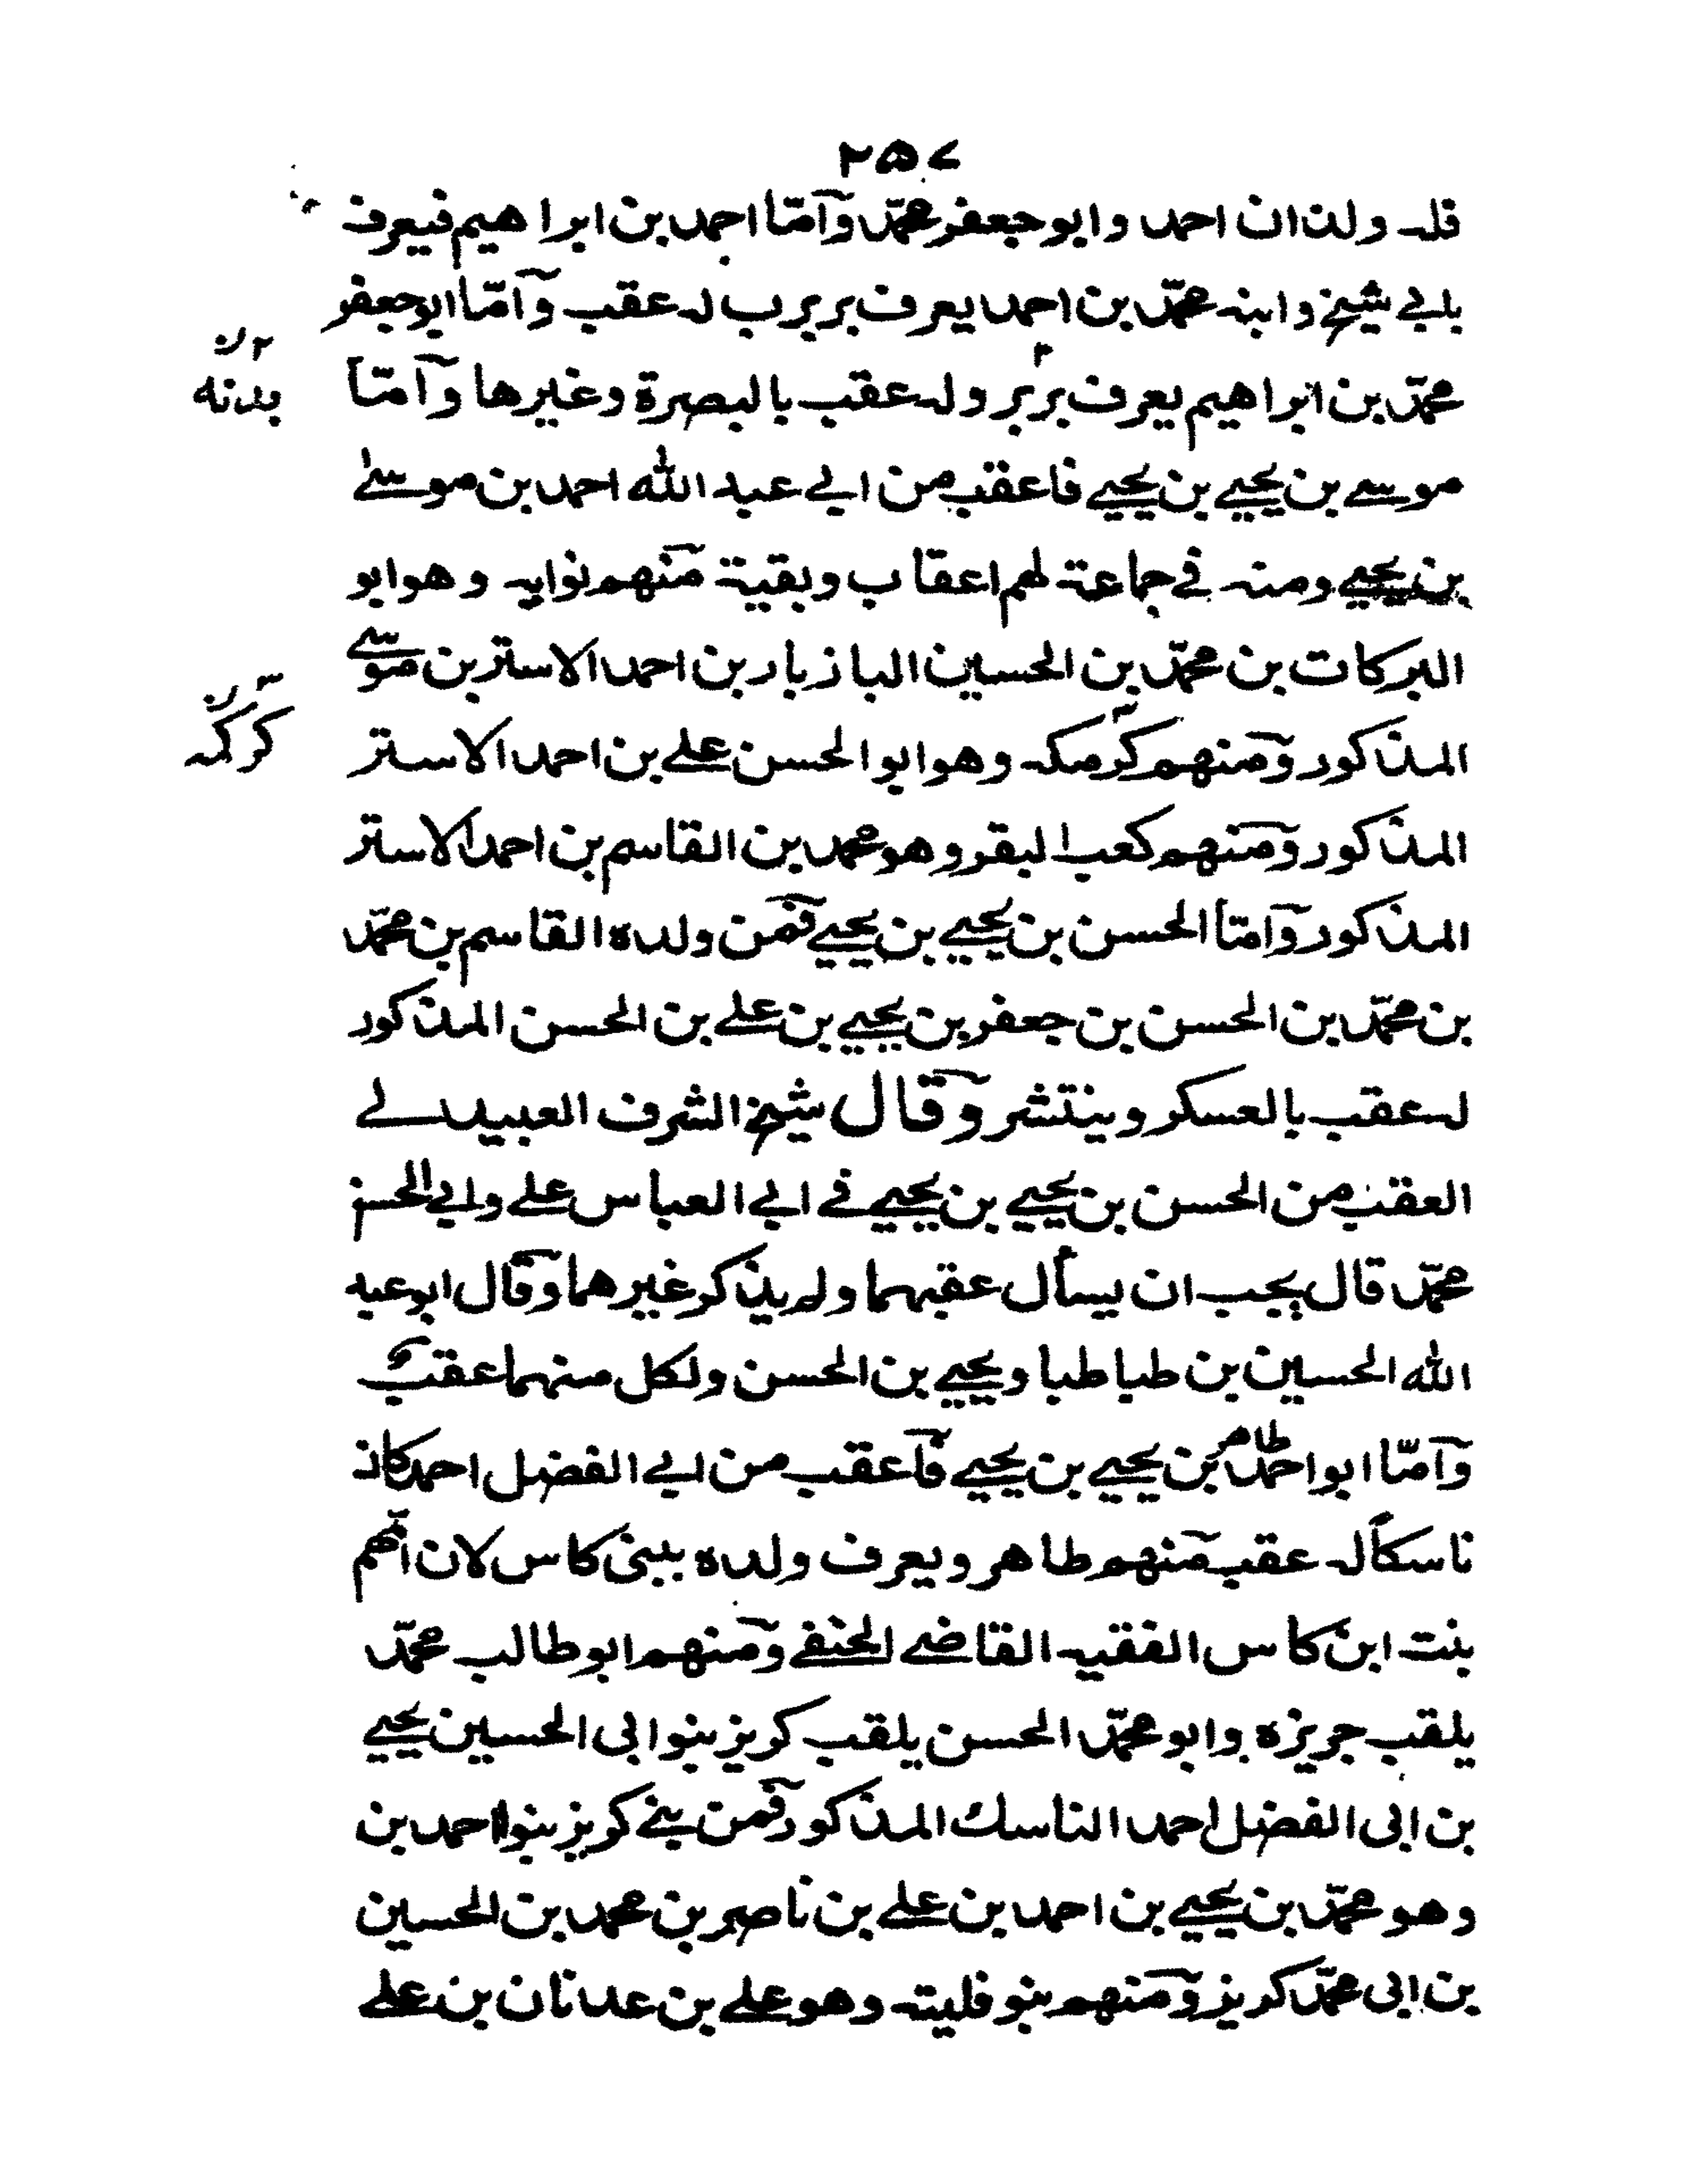 ٢٥٧
فله ولدان احمد وابوجعفر محمّد وآمّا احمد بن ابراهيم فيعرف
بابي شيخ وابنه محمّد بن احمد يعرف بربرب له عقب وآمّا ابوجعفر
محمّد بن ابراهيم يعرف بربر وله عقب بالبصرة وغيرها وآمّا
موسى بن يحيى بن يحيى فاعقب من ابي عبد الله احمد بن موسى
بن يحيى ومنه في جماعة لهم اعقاب وبقية منهم نوابه وهو ابو
البركات بن محمّد بن الحسين البازبار بن احمد الاستر بن موسى
المذكور ومنهم كركمكه وهو ابو الحسن علي بن احمد الاستر
المذكور ومنهم كعب البقر وهو محمد بن القاسم بن احمد الاستر
المذكور وآمّا الحسن بن يحيى بن يحيى فمن ولده القاسم بن محمّد
بن محمّد بن الحسن بن جعفر بن يحيى بن علي بن الحسن المذكور
له عقب بالعسكر وينتشر وقال شيخ الشرف العبيدلي
العقب من الحسن بن يحيى بن يحيى في ابي العباس علي وابي الحسن
محمّد قال يجب ان يسأل عقبهما ولم يذكر غيرهما وقال ابو عبد
الله الحسين بن طباطبا ويحيى بن الحسن ولكل منهما عقب
وآمّا ابو احمد طاهر بن يحيى بن يحيى فاعقب من ابي الفضل احمد كان
ناسكاً له عقب منهم طاهر ويعرف ولده ببنى كاس لان امّهم
بنت ابن كاس الفقيه القاضي الحنفي ومنهم ابوطالب محمّد
يلقب جريزه وابو محمّد الحسن يلقب كريز بنوا ابى الحسين يحيى
بن ابى الفضل احمد الناسك المذكور فمن بني كريز بنوا احمد بن
وهو محمّد بن يحيى بن احمد بن علي بن ناصر بن محمد بن الحسين
بن ابى محمّد كريز ومنهم بنو فليته وهو علي بن عدنان بن علي